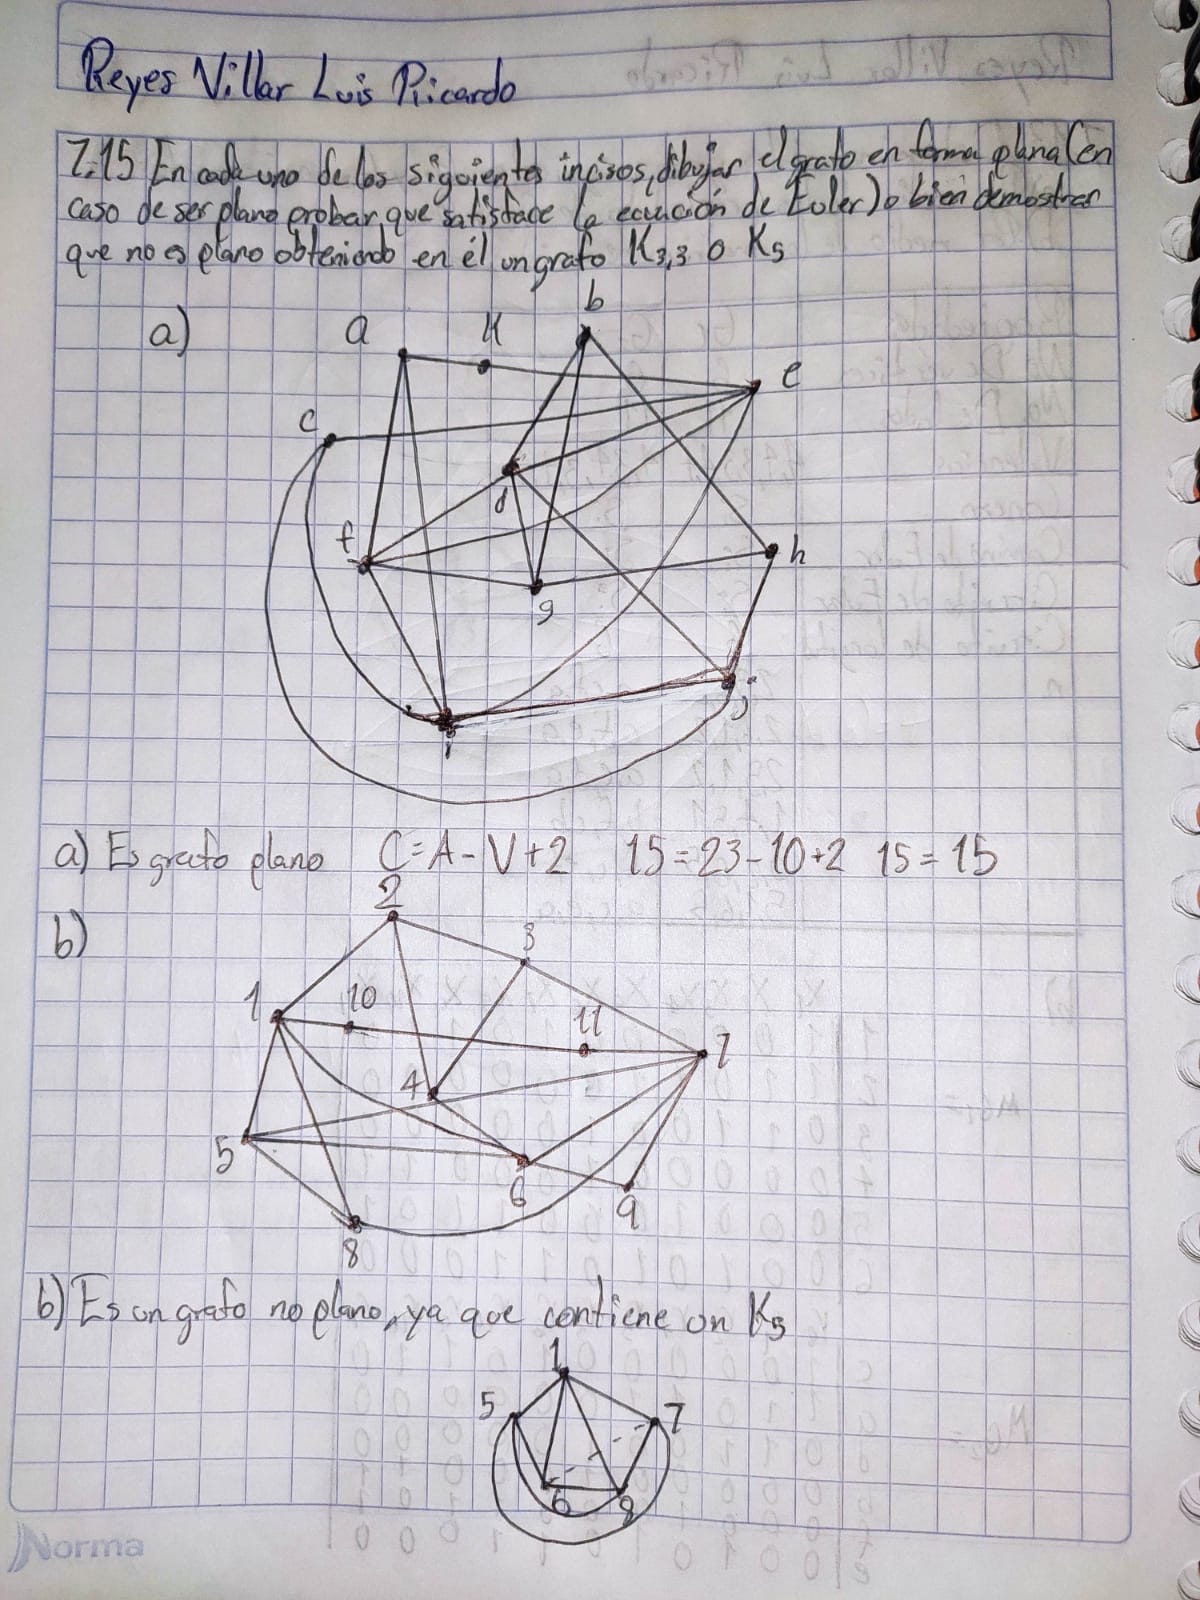 Reyes Villar Luis Ricardo
7.15 En cada uno de los siguientes incisos, dibujar el grafo en forma plana (en
caso de ser plano probar que satisface la ecuación de Euler) o bien demostrar
que no es plano obteniendo en él un grafo K3,3 o K5
a)
a K b
e
c
d
f
h
g
j
i
a) Es grafo plano C=A-V+2 15=23-10+2 15=15
b)
2
3
1 10
11
7
4
5
6
9
8
b) Es un grafo no plano, ya que contiene un K5
1
5 7
6 8
Norma